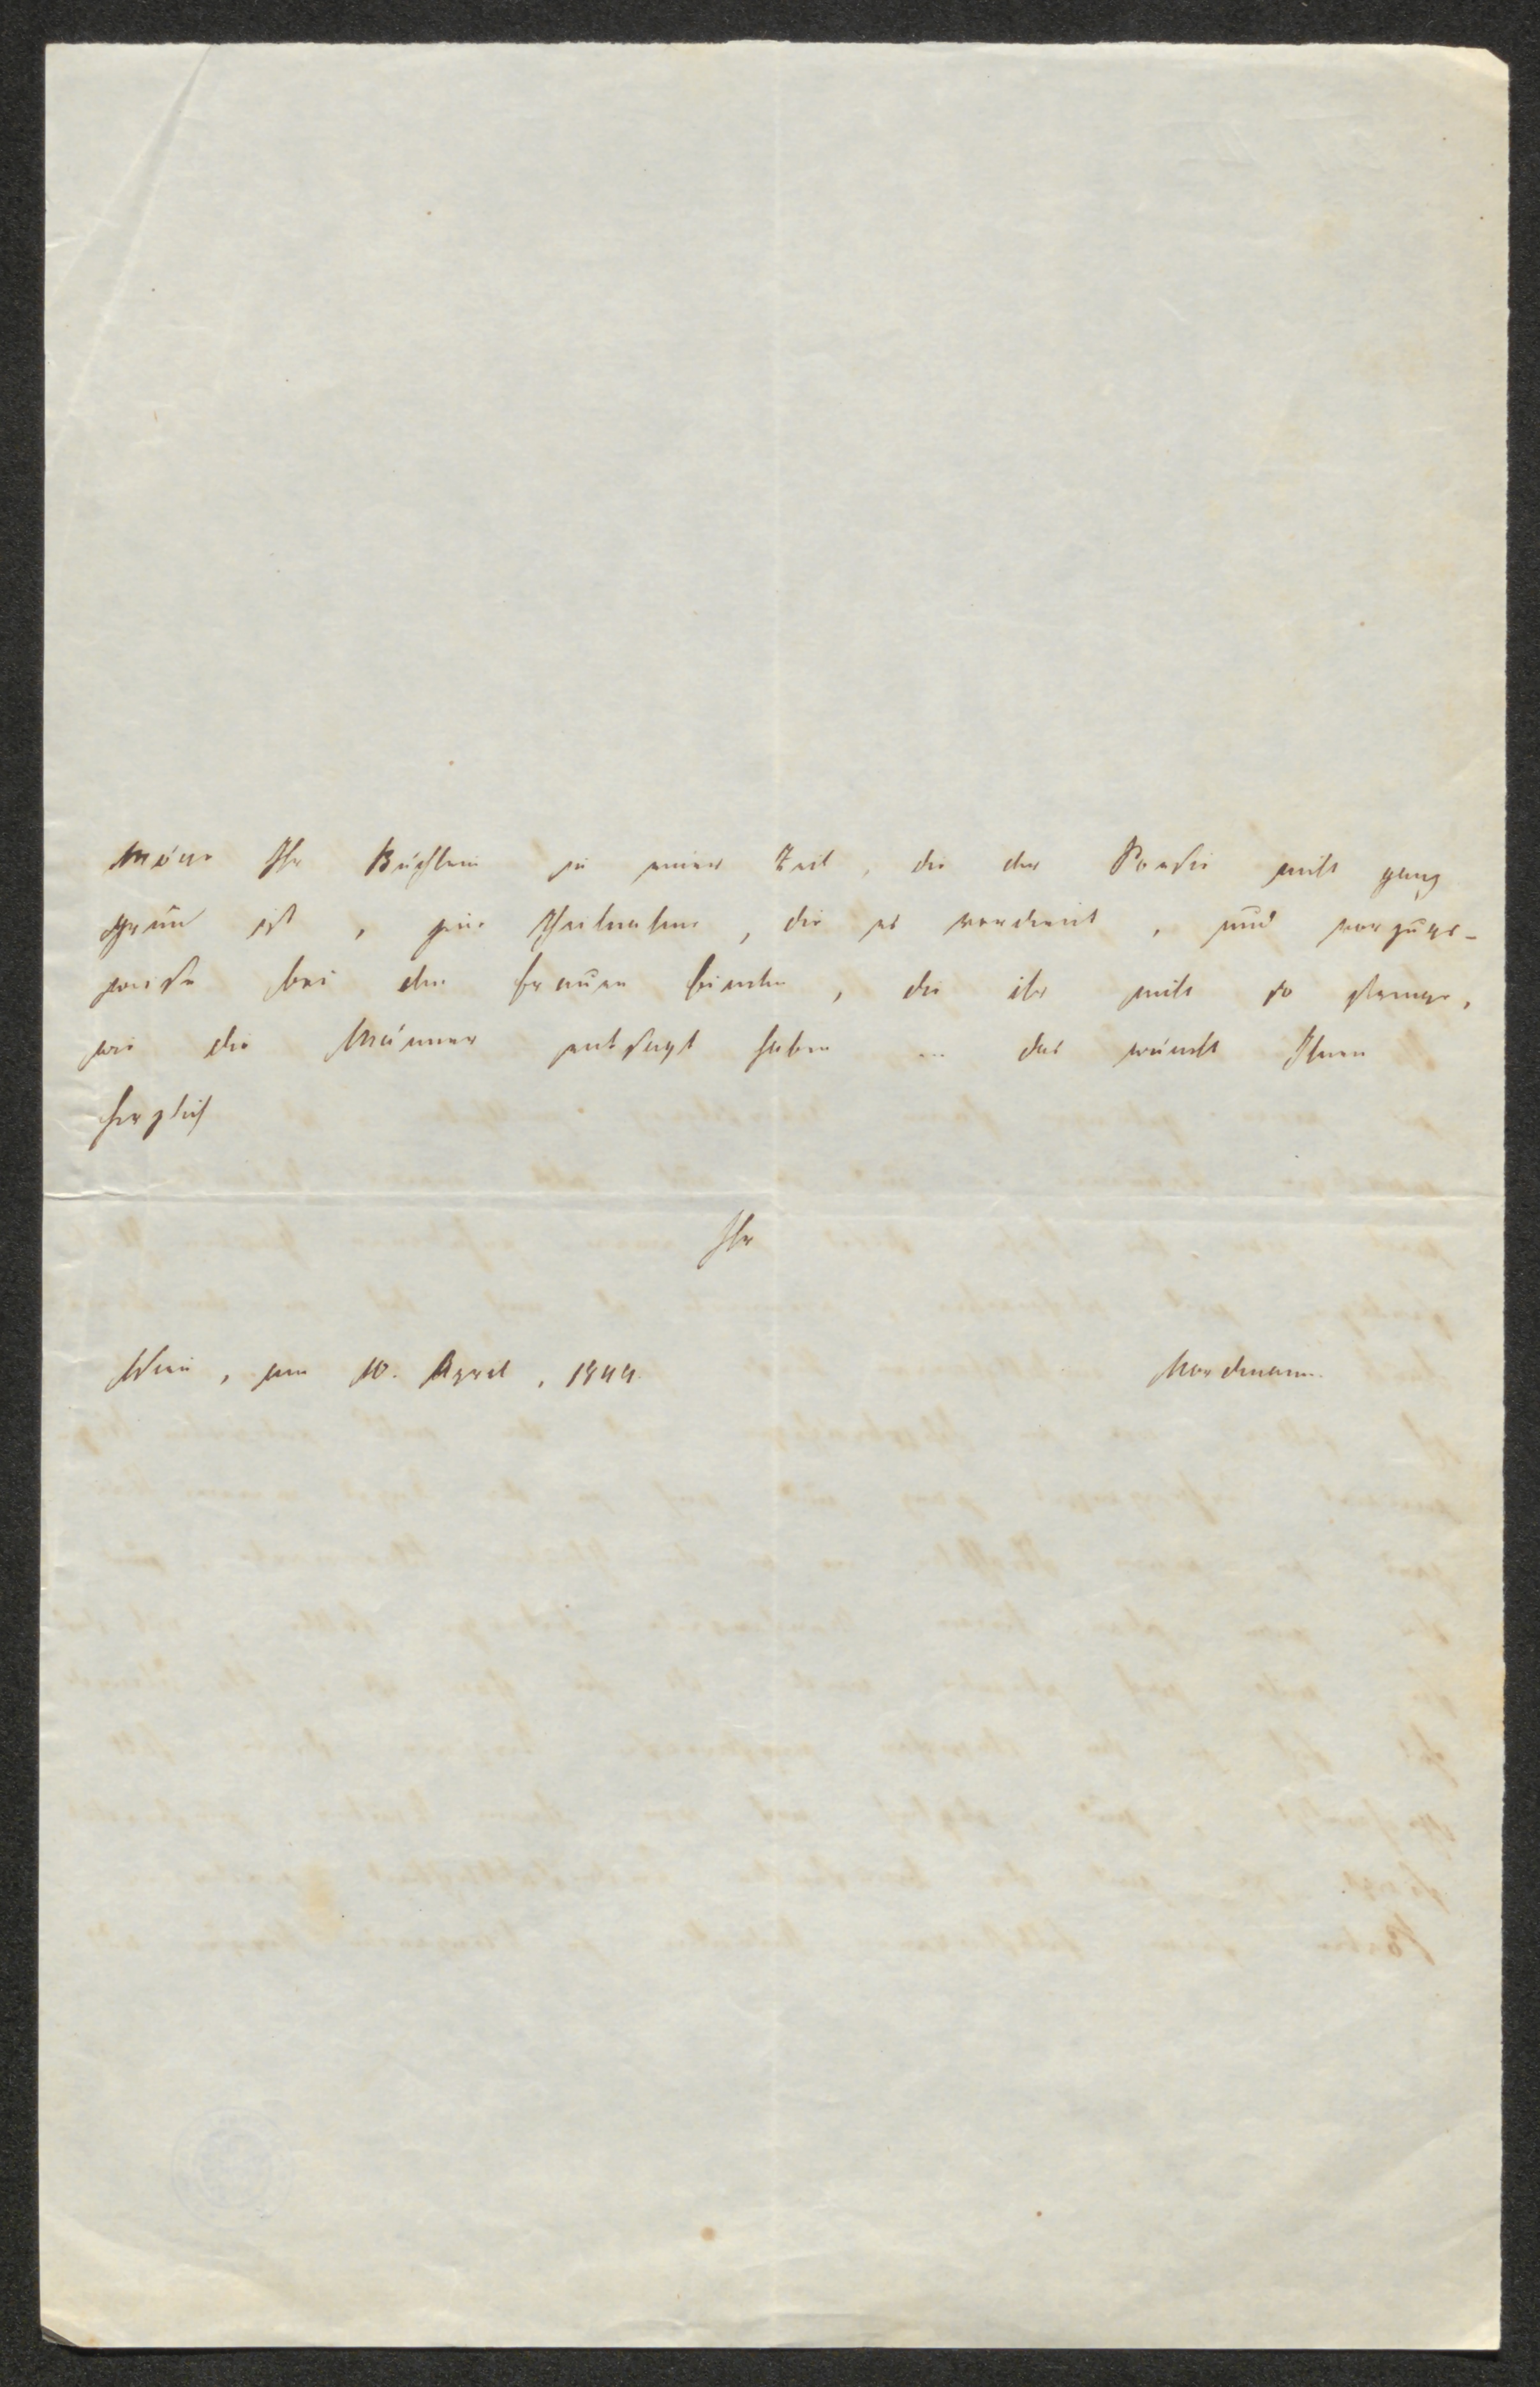 Möge Ihr Büchlein in einer Zeit, die der Poesie nicht ganz
grün ist, jene Theilnahme, die es verdient, und vorzugs-
weise bei den Frauen finden, die ihr nicht so strenge,
wie die Männer entsagt haben ... das wünscht Ihnen
herzlich
Ihr
Wien, am 10. April, 1844.
Nordmann.